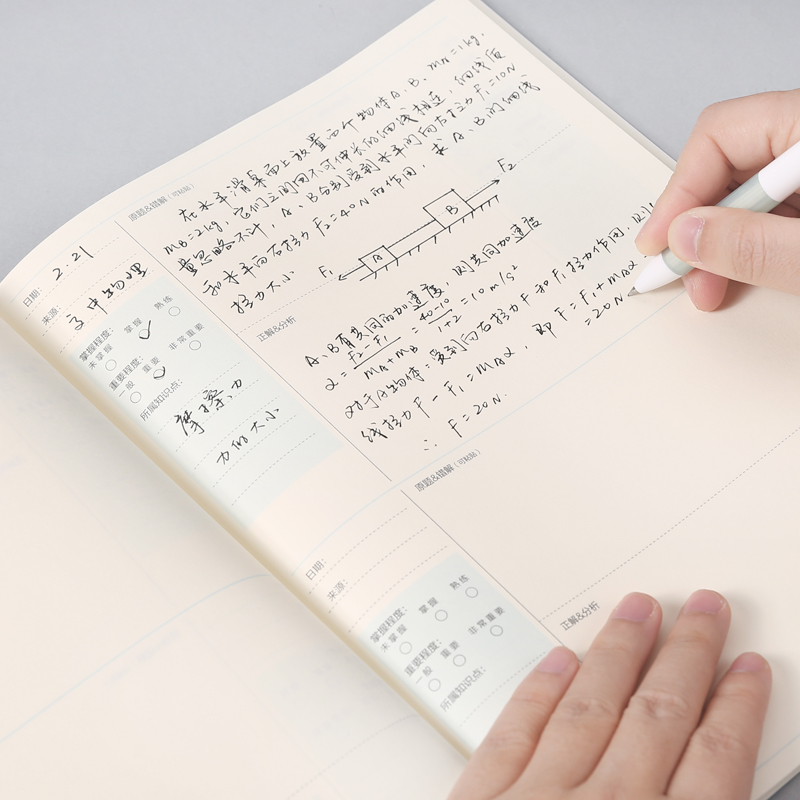 原题&错解（可粘贴）
在水平滑桌面上放置两个物体A、B、mA=1kg,
mB=2kg,它们之间用不可伸长的细线相连,细线质
量忽略不计,A、B分别受到水平间向左拉力F1=10N
和水平向右拉力F2=40N的作用,求A、B间细线
拉力大小
F1 A B F2
日期: 2.21
来源: 高中物理
掌握程度:
未掌握 掌握 熟练
重要程度:
一般 重要 非常重要
所属知识点:
摩擦力
力的大小
正解&分析
A、B有共同的加速度,则共同加速度
a=F2-F1/mA+mB=40-10/1+2=10m/s²
对于A物体:受到向右拉力F和F1拉力作用,
线拉力F-F1=mAa,即F=F1+mAa
=20N
∴ F=20N.
原题&错解（可粘贴）
日期:
来源:
掌握程度:
未掌握 掌握 熟练
重要程度:
一般 重要 非常重要
所属知识点:
正解&分析